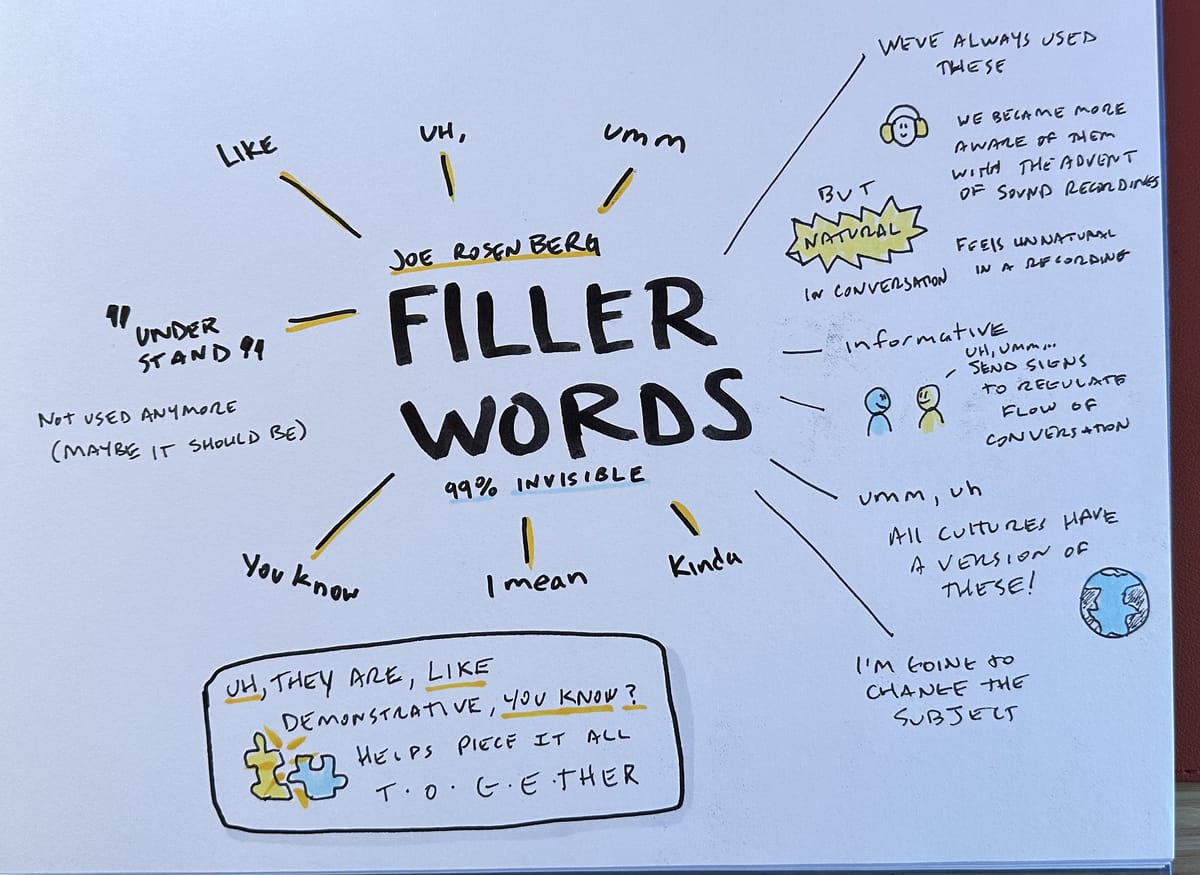 LIKE
UH,
UMM
JOE ROSENBERG
FILLER
WORDS
99% INVISIBLE
"UNDER
STAND"
NOT USED ANYMORE
(MAYBE IT SHOULD BE)
You know
I mean
Kinda
UH, THEY ARE, LIKE
DEMONSTRATIVE, YOU KNOW?
HELPS PIECE IT ALL
T.O.G.E.THER
WE'VE ALWAYS USED
THESE
WE BECAME MORE
AWARE OF THEM
WITH THE ADVENT
OF SOUND RECORDINGS
BUT
NATURAL
IN CONVERSATION
FEELS UNNATURAL
IN A RECORDING
informative
UH, UMM...
SEND SIGNS
TO REGULATE
FLOW OF
CONVERSATION
umm, uh
All CULTURES HAVE
A VERSION OF
THESE!
I'M GOING TO
CHANGE THE
SUBJECT